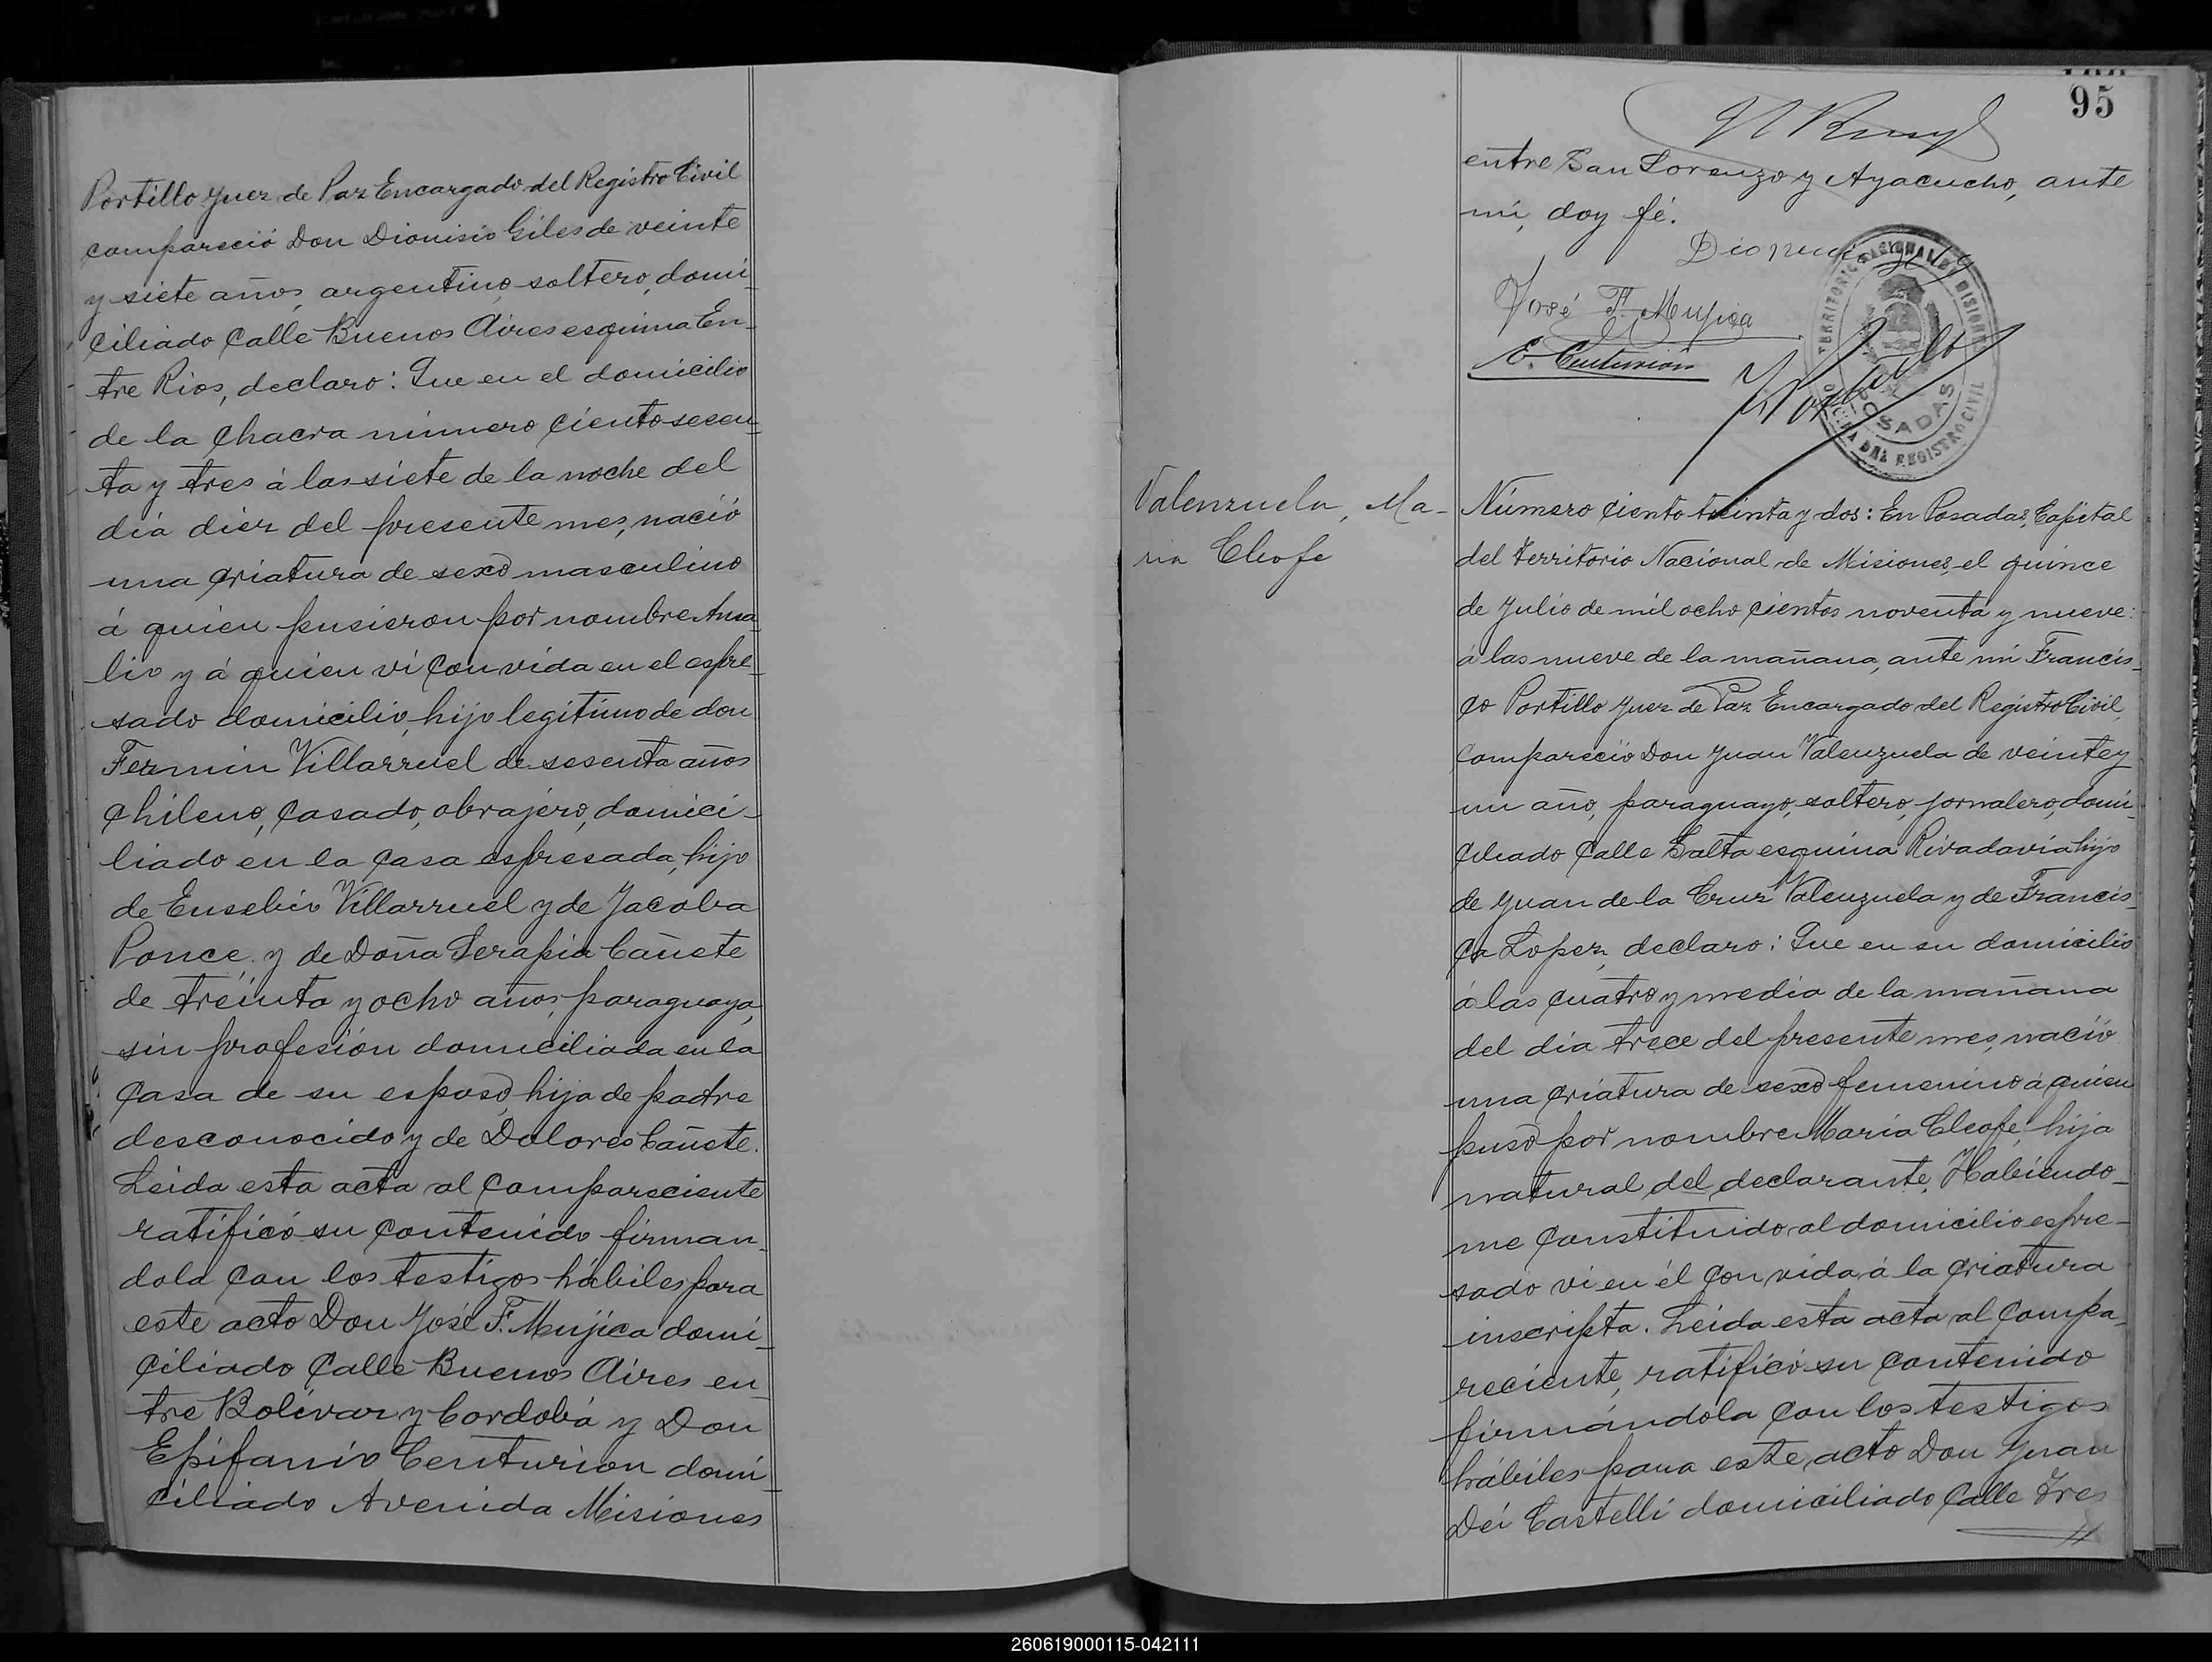 Portillo Juez de Paz Encargado del Registro Civil
compareció Don Dionisio Giles de veinte
y siete años, argentino, soltero, domi-
ciliado Calle Buenos Aires esquina En-
tre Rios, declaro: Que en el domicilio
de la Chacra número Ciento sesen-
ta y tres á las siete de la noche del
día diez del presente mes, nació
una Criatura de sexo masculino
á quien pusieron por nombre Ama-
lio y á quien ví con vida en el espre-
sado domicilio, hijo legítimo de don
Fermin Villarruel de sesenta años
Chileno, Casado, obrajero, domici-
liado en la Casa espresada, hijo
de Eusebio Villarruel y de Jacoba
Ponce y de Doña Serapia Cañete
de treinta y ocho años, paraguaya,
sin profesión domiciliada en la
Casa de su esposo, hija de padre
desconocido y de Dolores Cañete.
Leida esta acta al Compareciente
ratificó su Contenido firman-
dola Con los testigos hábiles para
este acto Don José F. Mujica domi-
ciliado Calle Buenos Aires en-
tre Bolívar y Cordoba y Don
Epifanio Centurion domi-
ciliado Avenida Misiones
95
entre San Lorenzo y Ayacucho, ante
mí, doy fé.
José F. Mujica
E. Centurión
TERRITORIO NACIONAL DE MISIONES
POSADAS
OFICINA DEL REGISTRO CIVIL
Valenzuela, Ma-
ria Cleofe
Número Ciento treinta y dos: En Posadas, Capital
del Territorio Nacional de Misiones, el quince
de Julio de mil ocho Cientos noventa y nueve:
á las nueve de la mañana, ante mí Francis-
co Portillo Juez de Paz Encargado del Registro Civil,
Compareció Don Juan Valenzuela de veinte y
un año, paraguayo, soltero, jornalero, domi-
ciliado Calle Salta esquina Rivadavia hijo
de Juan de la Cruz Valenzuela y de Francis-
ca Lopez, declaro: Que en su domicilio
á las Cuatro y media de la mañana
del día trece del presente mes, nació
una Criatura de sexo femenino á quien
puso por nombre María Cleofe, hija
natural del declarante, Habiendo-
me Constituido al domicilio espre-
sado ví en él Con vida á la Criatura
inscripta. Leida esta acta al Compa-
reciente, ratificó su Contenido
firmándola Con los testigos
hábiles para este acto Don Juan
Dei Castelli domiciliado Calle Tres
260619000115-042111